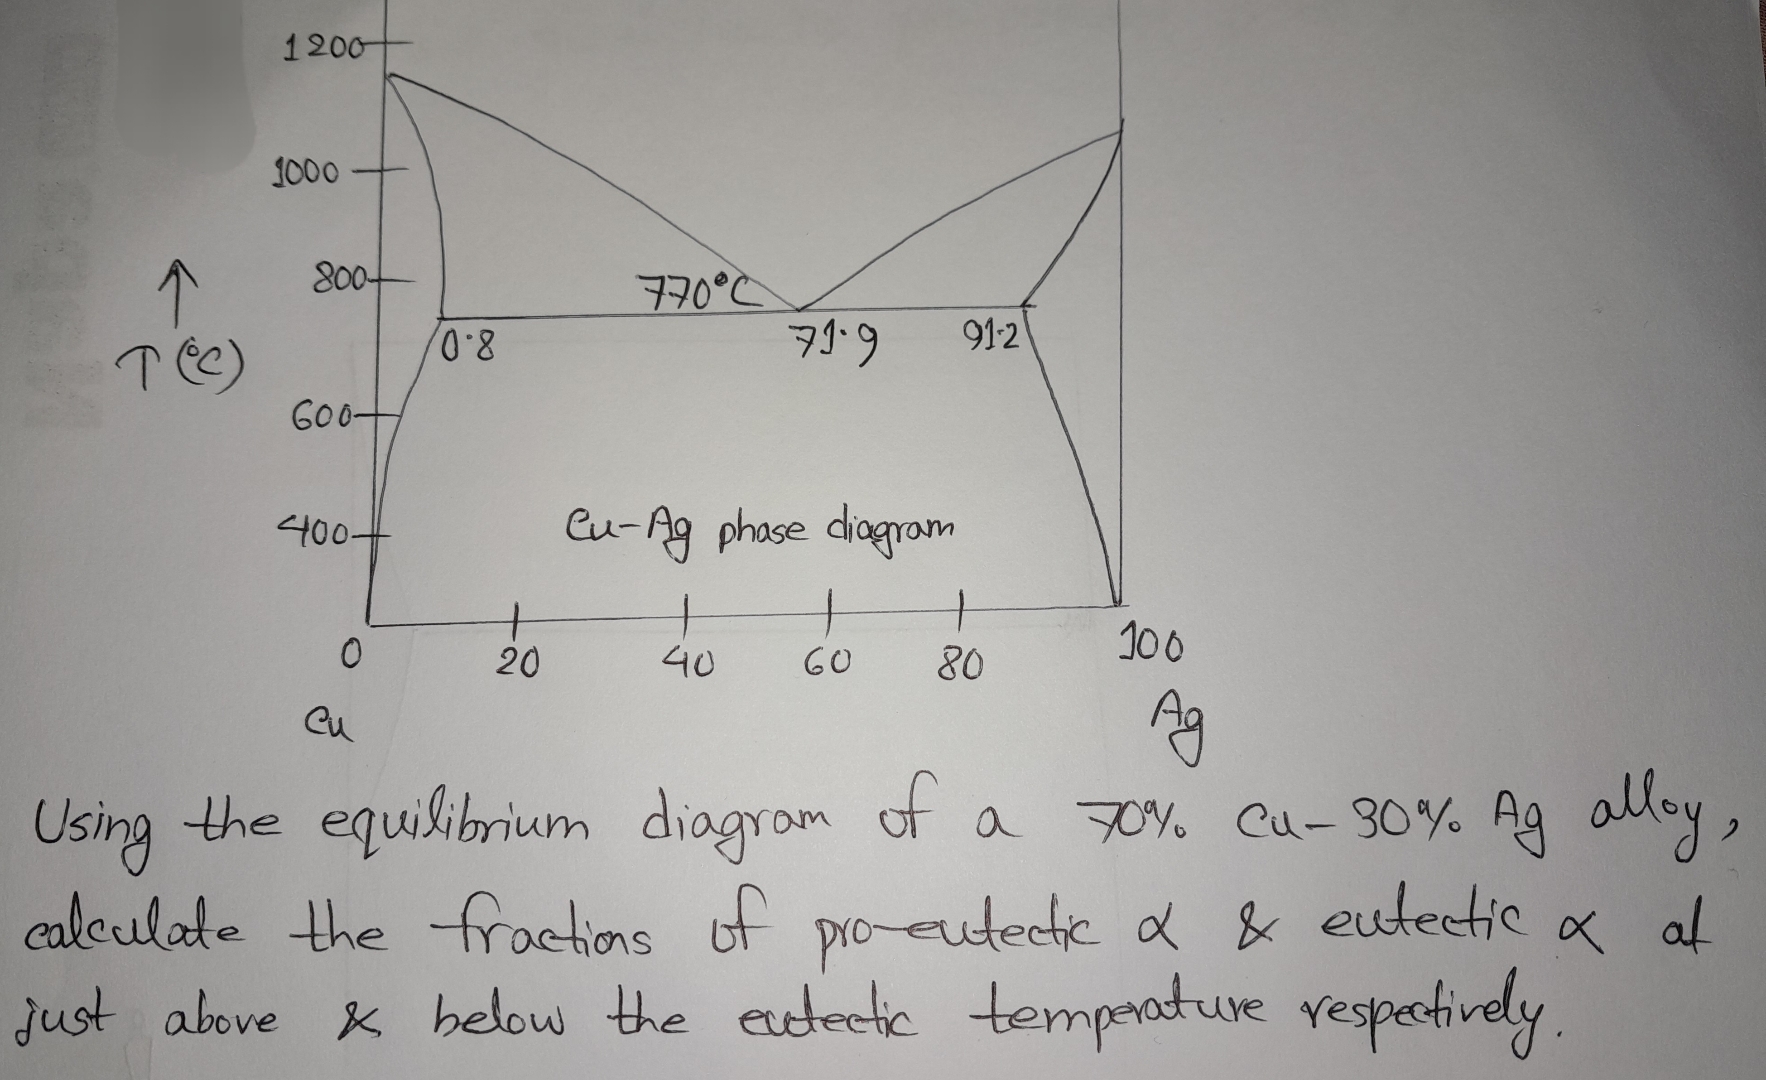 1200
1000
800
770°C
↑
T (°C)
0.8
71.9
91.2
600
400
Cu-Ag phase diagram
0
20
40
60
80
100
Cu
Ag
Using the equilibrium diagram of a 70% Cu-30% Ag alloy,
calculate the fractions of pro-eutectic α & eutectic α at
just above & below the eutectic temperature respectively.